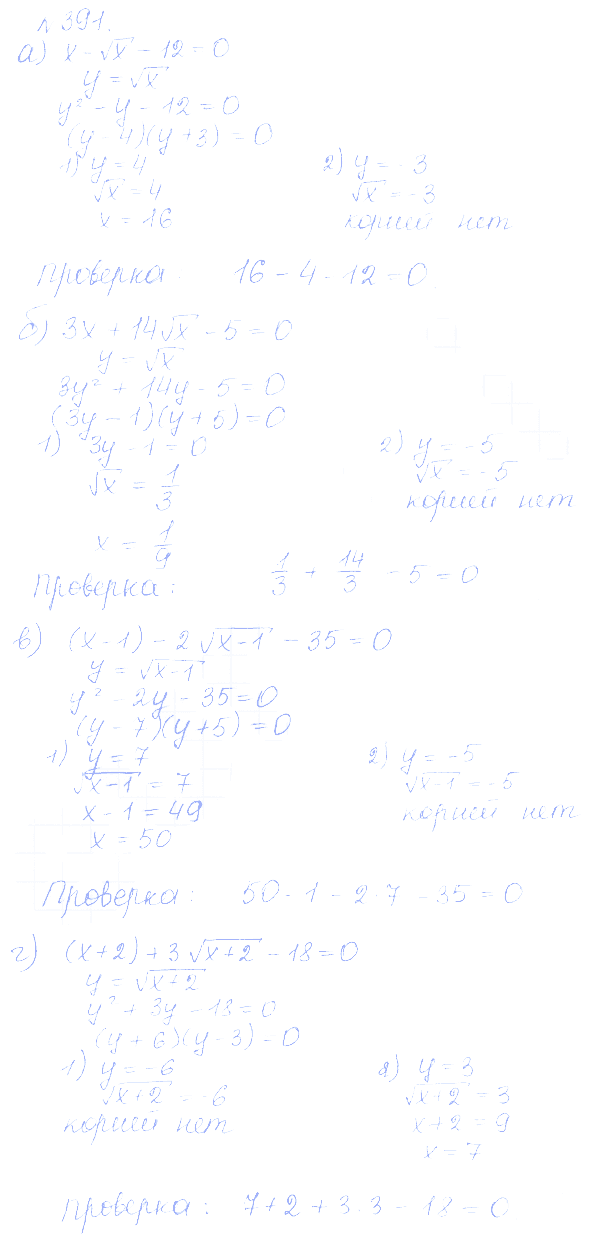 № 391.
а) x - √x - 12 = 0
y = √x
y² - y - 12 = 0
(y - 4)(y + 3) = 0
1) y = 4 2) y = -3
√x = 4 √x = -3
x = 16 корней нет
Проверка. 16 - 4 - 12 = 0.
б) 3x + 14√x - 5 = 0
y = √x
3y² + 14y - 5 = 0
(3y - 1)(y + 5) = 0
1) 3y - 1 = 0 2) y = -5
√x = 1/3 √x = -5
x = 1/9 корней нет
Проверка: 1/3 + 14/3 - 5 = 0
в) (x - 1) - 2√(x-1) - 35 = 0
y = √(x-1)
y² - 2y - 35 = 0
(y - 7)(y + 5) = 0
1) y = 7 2) y = -5
√(x-1) = 7 √(x-1) = -5
x - 1 = 49 корней нет
x = 50
Проверка: 50 - 1 - 2·7 - 35 = 0
г) (x+2) + 3√(x+2) - 18 = 0
y = √(x+2)
y² + 3y - 18 = 0
(y + 6)(y - 3) = 0
1) y = -6 2) y = 3
√(x+2) = -6 √(x+2) = 3
корней нет x + 2 = 9
x = 7
Проверка: 7 + 2 + 3·3 - 18 = 0